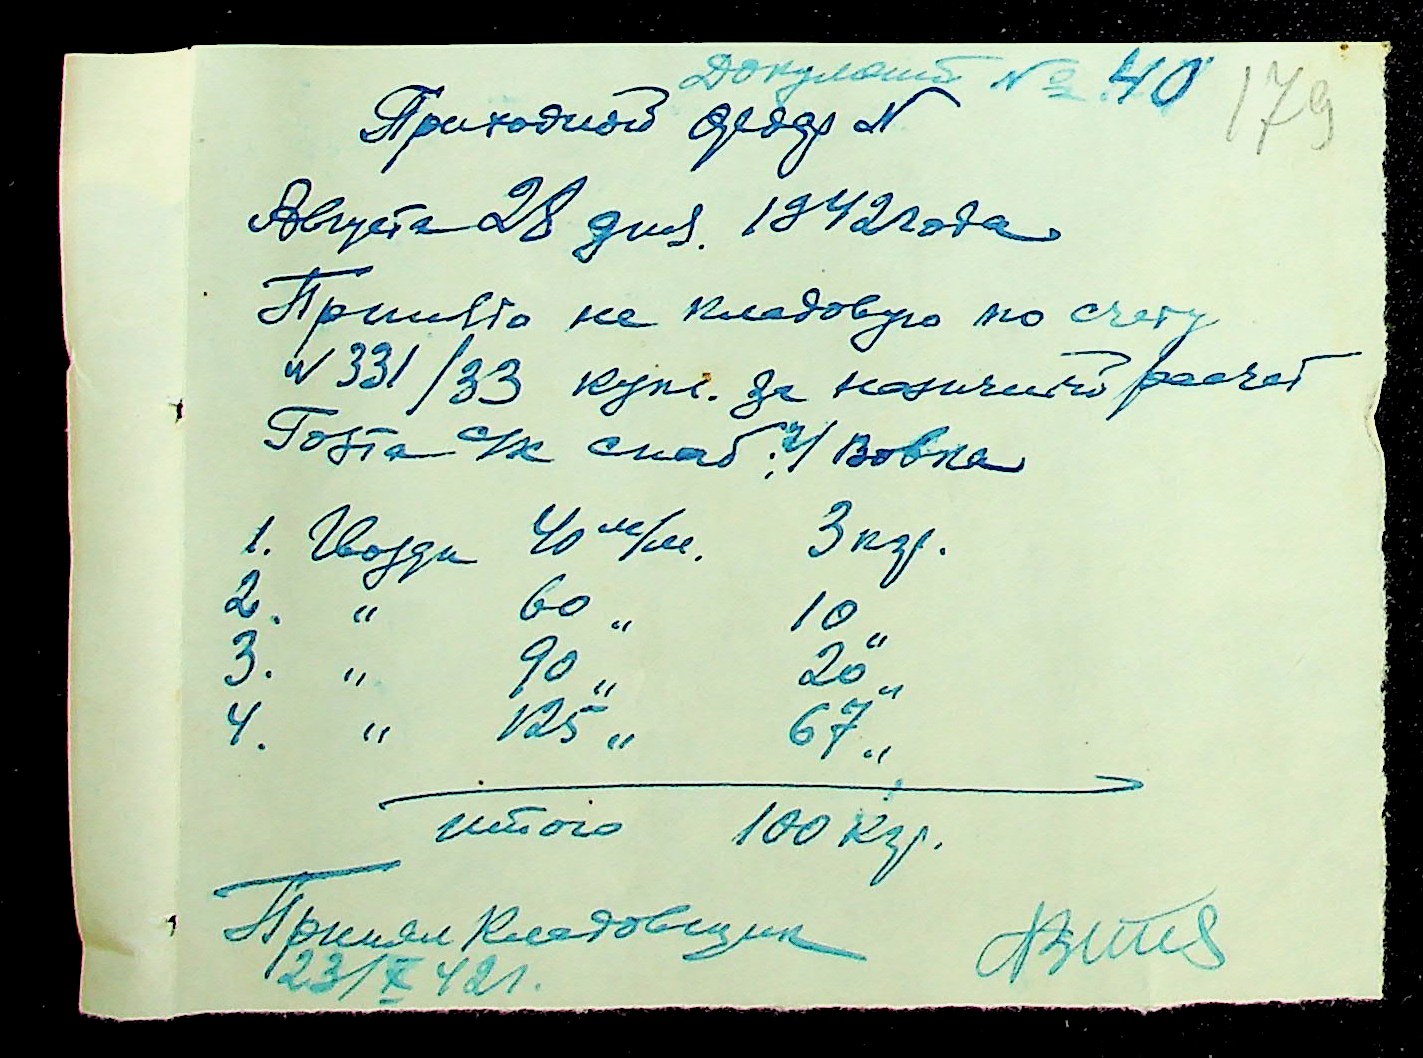 Документ № 40
179
Приходной ордер N
Августа 28 дня. 1942 года
Принято на кладовую по счету
N 331/33 купл. за наличный расчет
с/х снаб.
1. Гвозди 40 м/м. 3 кгр.
2. " 60 " 10 "
3. " 90 " 20 "
4. " 125 " 67 "
итого 100 кгр.
Принял Кладовщик
23/X 42 г.